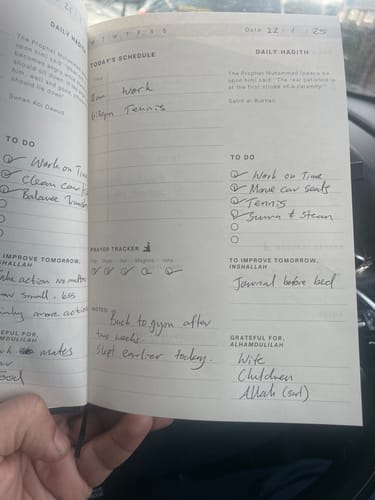 DAILY HADITH
The Prophet Muhammad (peace be
upon him) said
becomes angry
should sit down
him, well and good
should lie down"
Sunan Abi Dawud
TO DO
Work on Time
Clean car
Balance
TO IMPROVE TOMORROW,
INSHALLAH
Take action no matter
how small, less
more action
GRATEFUL FOR,
ALHAMDULILAH
mates
M T W T F S S
Date: 22 / 1 / 25
TODAY'S SCHEDULE
Time
8am Work
Tennis
PRAYER TRACKER
Fajr Dhuhr Asr Maghrib Isha
NOTES
Back to gym after
two weeks.
Slept earlier today.
DAILY HADITH
The Prophet Muhammad (peace be
upon him) said "The real patience is
at the first stroke of a calamity."
Sahih al-Bukhari
TO DO
Work on Time
Move car seats
Tennis
Sauna & Steam
TO IMPROVE TOMORROW,
INSHALLAH
Journal before bed
GRATEFUL FOR,
ALHAMDULILAH
Wife
Children
Allah (swt)